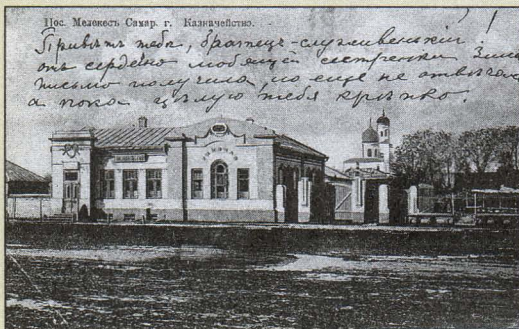 Пос. Мелекесъ Самар. г. Казначейство.
Привѣтъ тебѣ, братецъ-служивенькій !
отъ сердечно любящей сестренки Зины
письмо получила, но еще не отвѣчала
а пока цѣлую тебя крѣпко.